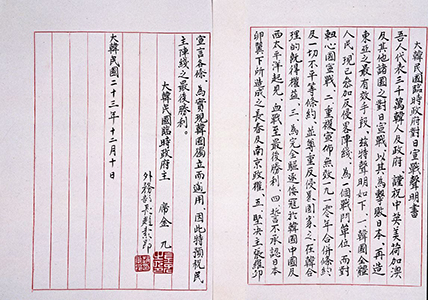 大韓民國臨時政府對日宣戰聲明書
吾人代表三千萬韓人及政府 謹祝中英美荷加澳
及其他諸國之對日宣戰 以其為擊敗日本、再造
東亞之最有效手段、茲特聲明如下 一、韓國全體
人民、現已參加反侵畧陣綫、為一個戰鬥單位、而對
軸心國宣戰、二、重複宣佈無效一九一零年合併條約
及一切不平等條約、並尊重反侵畧國家之在韓合
理的既得權益、三、為完全驅逐倭寇於韓國中國及
西太平洋起見、血戰至最後勝利、四、誓不承認日本
卵翼下所造成之長春及南京政權、五、堅決主張羅邱
宣言各條、為實現韓國獨立而適用、因此特預祝民
主陣綫之最後勝利。
大韓民國臨時政府主 席 金 九
外務部長趙素卬
大韓民國二十三年十二月十日